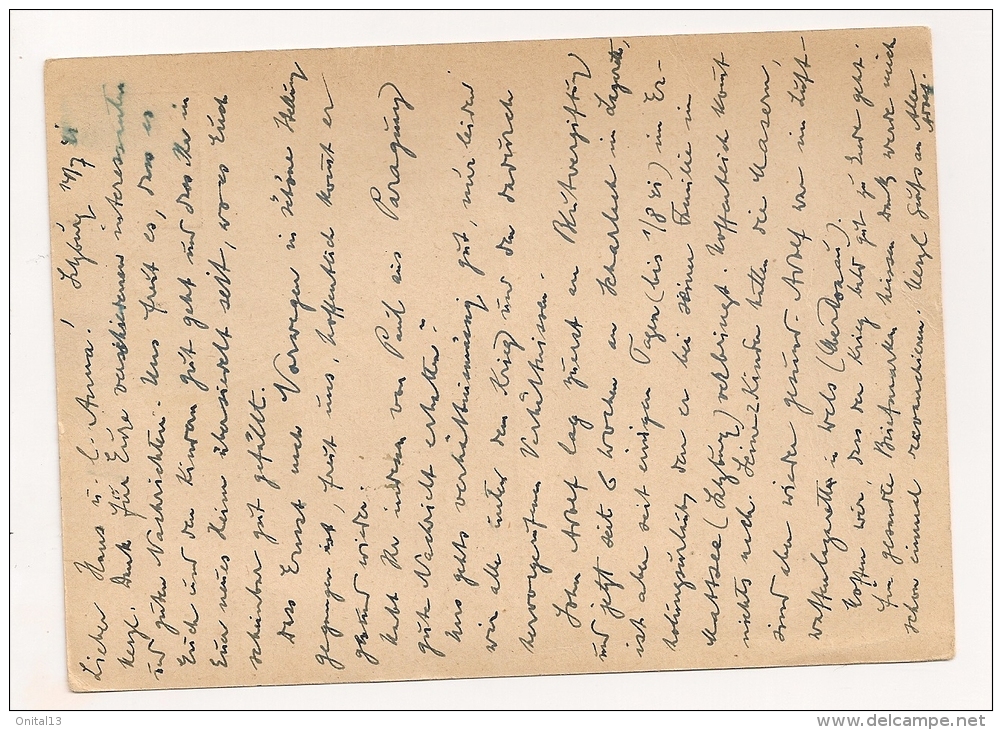 Lieber Hans u. l. Anna! Salzburg 14/7 41
Herzl. Dank für Eure verschiedenen interessanten
und guten Nachrichten. Uns freut es, dass es
Euch und den Kindern gut geht und dass Ihr in
Euer neues Heim übersiedelt seit, wo es Euch
scheinbar gut gefällt.
Dass Ernst nach Norwegen in schöne Stellung
gegangen ist, freut uns, hoffentlich kommt er
gesund wieder.
Habt Ihr indem von Paul aus Paraguay
gute Nachricht erhalten?
Uns gehts verhältnismässig gut, nur leiden
wir alle unter dem Krieg und den dadurch
hervorgerufenen Verhältnissen.
Sohn Adolf lag zuerst an Blutvergiftung
und jetzt seit 6 Wochen an Scharlach in Lazarett,
ist aber seit einigen Tagen (bis 1/8 41) im Er-
holungsurlaub, den er bei seiner Familie in
Mattsee (Salzburg) verbringt. Hoffentlich kommt
nichts nach. Seine 2 Kinder hatten die Masern,
sind aber wieder gesund. Adolf war im Luft-
waffenlazarett in Wels (Oberdonau).
Hoffen wir, dass der Krieg bald gut zu Ende geht.
Für gesandte Briefmarken besten Dank werde mich
schon einmal revanchieren. Herzl Grüße an Alle
Adolf
Onital13
www.delcampe.net